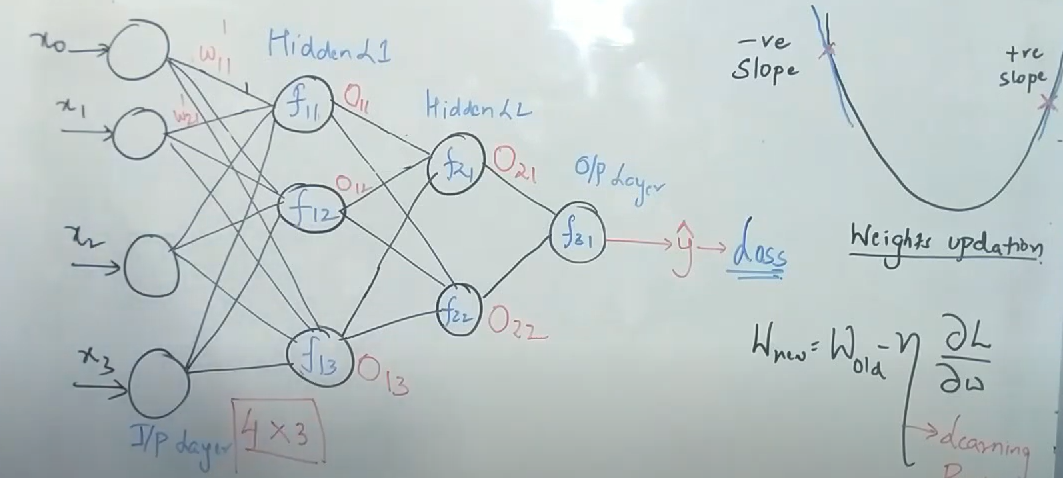 x₀
x₁
x₂
x₃
I/P Layer
4 × 3
w¹₁₁
w¹₂₁
Hidden L1
f₁₁
O₁₁
f₁₂
O₁₂
f₁₃
O₁₃
Hidden L2
f₂₁
O₂₁
f₂₂
O₂₂
O/P Layer
f₃₁
ŷ → Loss
-ve
Slope
+ve
slope
Weights updation
Wnew = Wold - η ∂L/∂w
Learning